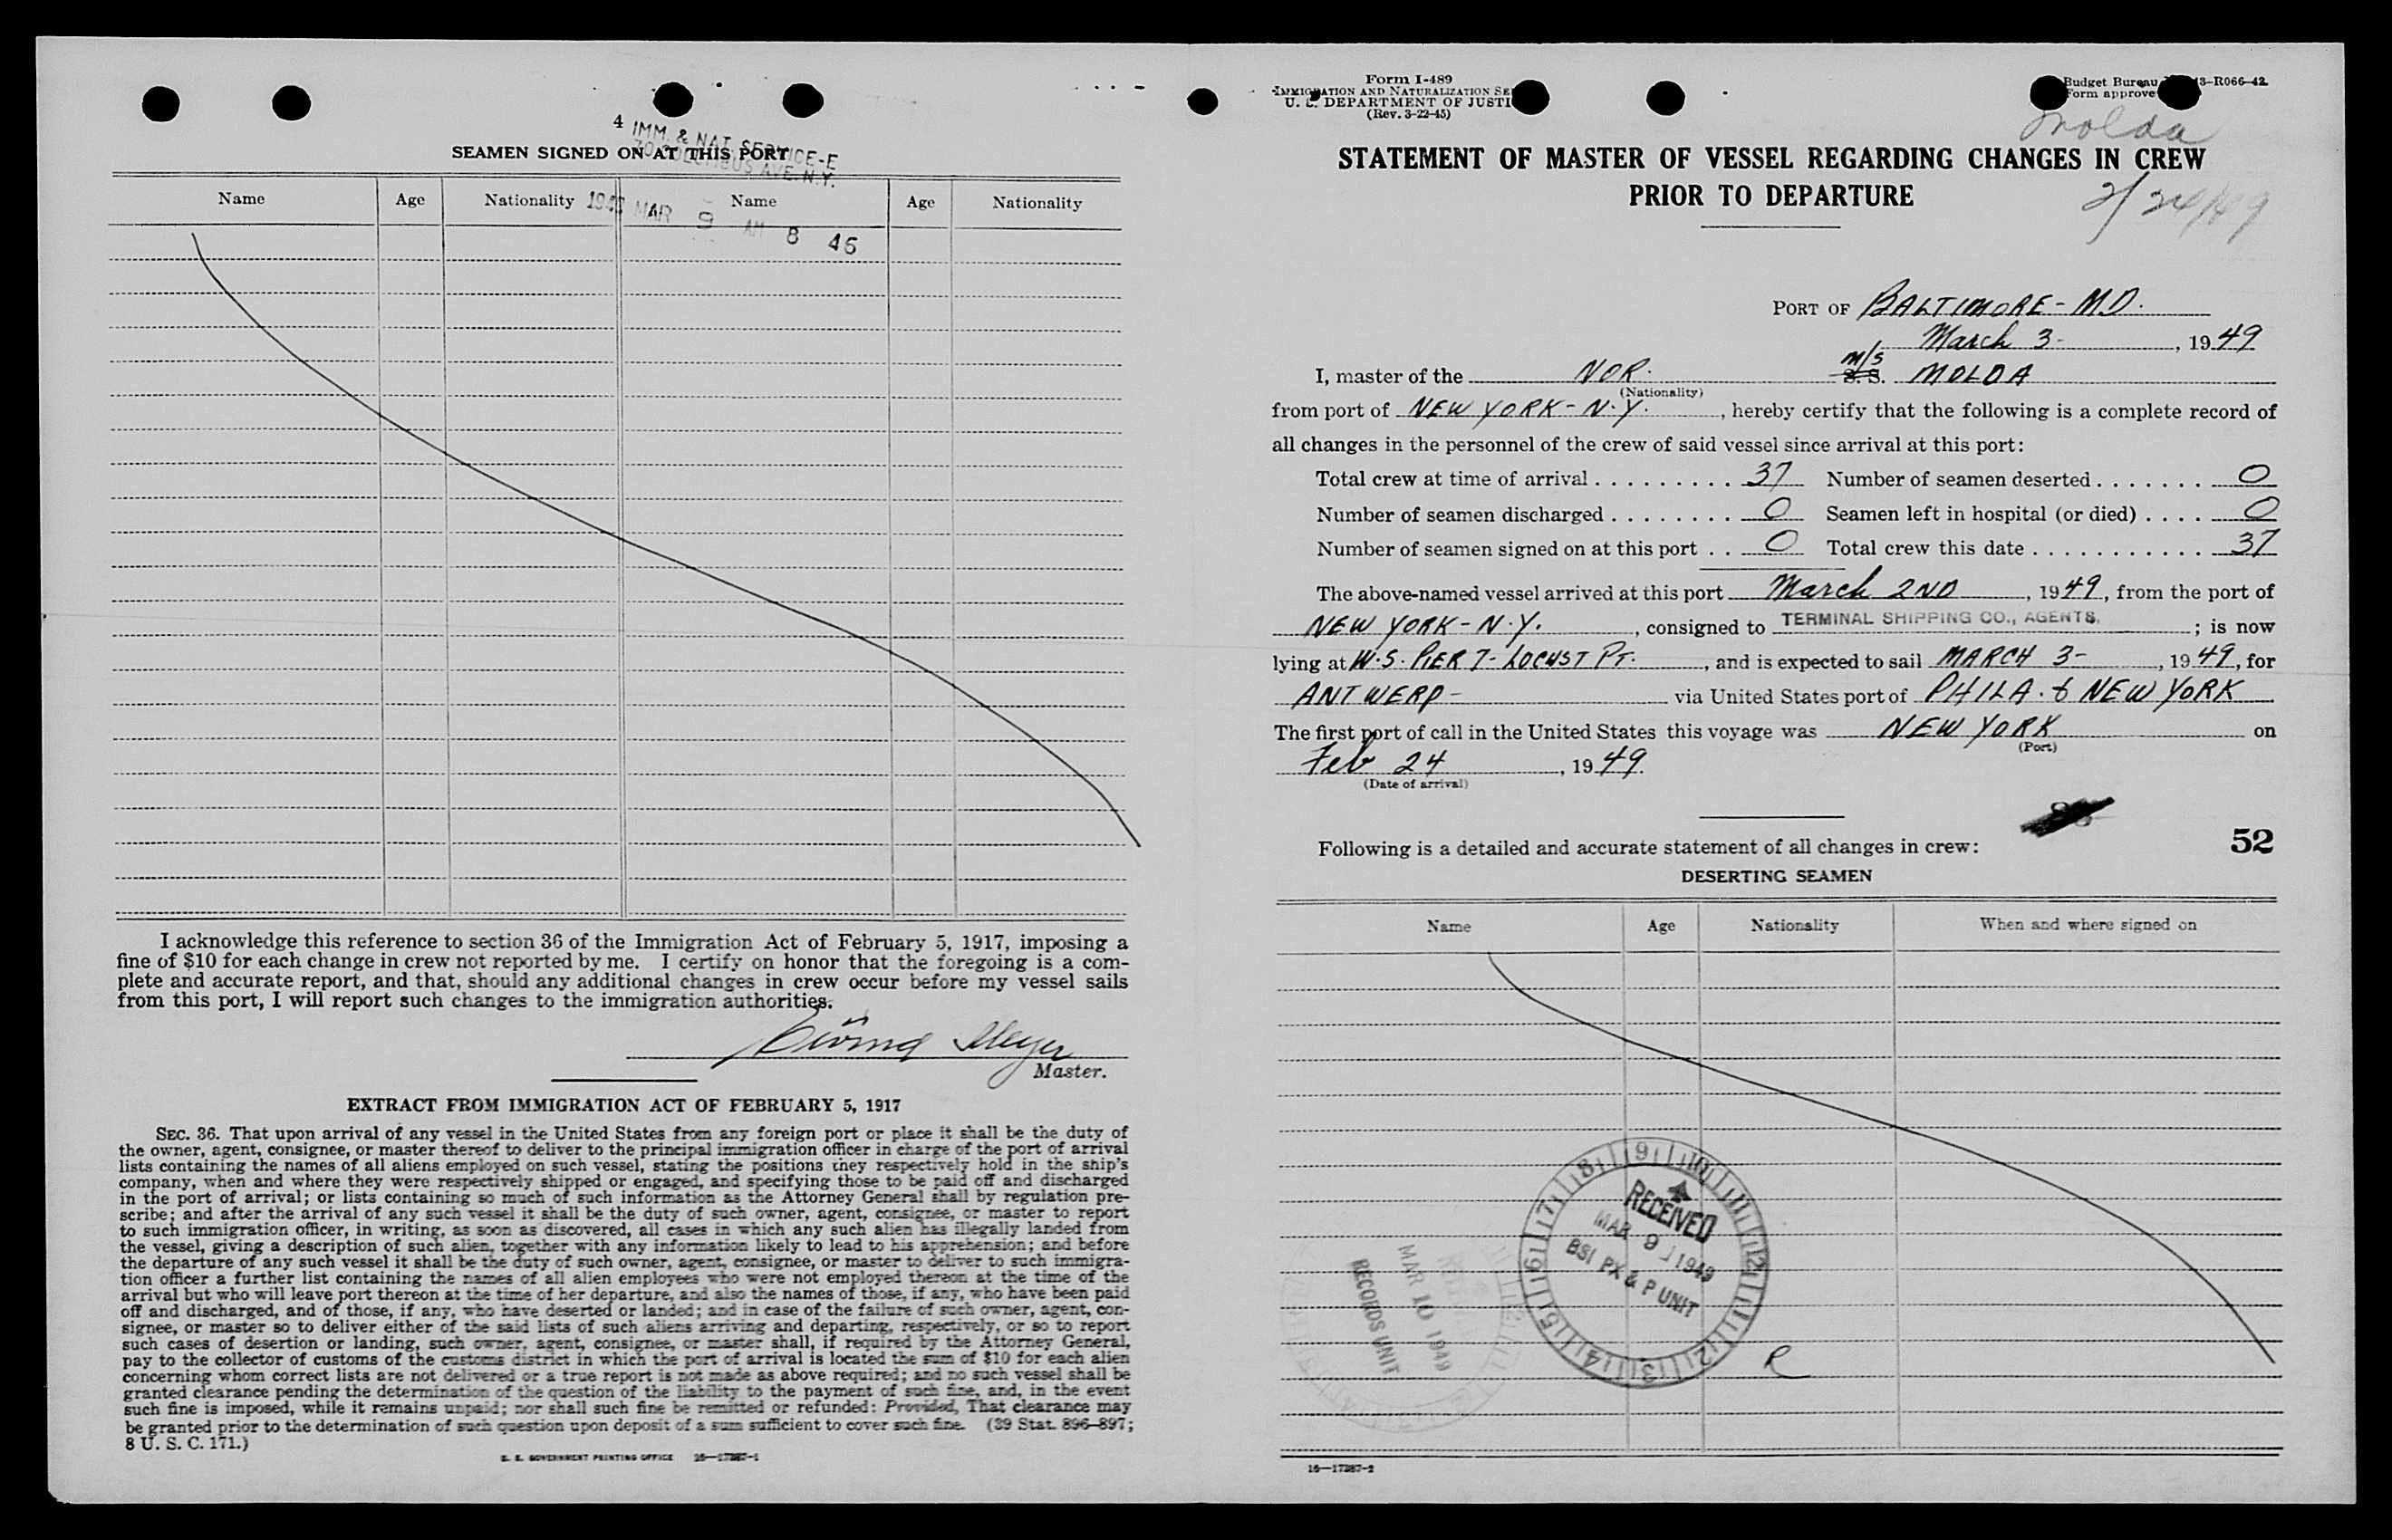 4
IMM. & NAT. SERVICE-E
70 COLUMBUS AVE. N.Y.
SEAMEN SIGNED ON AT THIS PORT
Name Age Nationality Name Age Nationality
MAR 9 AM 8 46
I acknowledge this reference to section 36 of the Immigration Act of February 5, 1917, imposing a
fine of $10 for each change in crew not reported by me. I certify on honor that the foregoing is a com-
plete and accurate report, and that, should any additional changes in crew occur before my vessel sails
from this port, I will report such changes to the immigration authorities.
Eivind Meyer
Master.
EXTRACT FROM IMMIGRATION ACT OF FEBRUARY 5, 1917
SEC. 36. That upon arrival of any vessel in the United States from any foreign port or place it shall be the duty of
the owner, agent, consignee, or master thereof to deliver to the principal immigration officer in charge of the port of arrival
lists containing the names of all aliens employed on such vessel, stating the positions they respectively hold in the ship's
company, when and where they were respectively shipped or engaged, and specifying those to be paid off and discharged
in the port of arrival; or lists containing so much of such information as the Attorney General shall by regulation pre-
scribe; and after the arrival of any such vessel it shall be the duty of such owner, agent, consignee, or master to report
to such immigration officer, in writing, as soon as discovered, all cases in which any such alien has illegally landed from
the vessel, giving a description of such alien, together with any information likely to lead to his apprehension; and before
the departure of any such vessel it shall be the duty of such owner, agent, consignee, or master to deliver to such immigra-
tion officer a further list containing the names of all alien employees who were not employed thereon at the time of the
arrival but who will leave port thereon at the time of her departure, and also the names of those, if any, who have been paid
off and discharged, and of those, if any, who have deserted or landed; and in case of the failure of such owner, agent, con-
signee, or master so to deliver either of the said lists of such aliens arriving and departing, respectively, or so to report
such cases of desertion or landing, such owner, agent, consignee, or master shall, if required by the Attorney General,
pay to the collector of customs of the customs district in which the port of arrival is located the sum of $10 for each alien
concerning whom correct lists are not delivered or a true report is not made as above required; and no such vessel shall be
granted clearance pending the determination of the question of the liability to the payment of such fine, and, in the event
such fine is imposed, while it remains unpaid; nor shall such fine be remitted or refunded: Provided, That clearance may
be granted prior to the determination of such question upon deposit of a sum sufficient to cover such fine. (39 Stat. 896–897;
8 U. S. C. 171.)
U. S. GOVERNMENT PRINTING OFFICE 16—17387-1
Form I-489
IMMIGRATION AND NATURALIZATION SE
U. S. DEPARTMENT OF JUSTI
(Rev. 3-22-45)
Budget Bureau 43-R066-42
Form approve
Molda
STATEMENT OF MASTER OF VESSEL REGARDING CHANGES IN CREW
PRIOR TO DEPARTURE
2/24/49
PORT OF BALTIMORE - MD.
March 3 - , 1949
I, master of the NOR. M/S S. S. MOLDA
(Nationality)
from port of NEW YORK - N.Y. , hereby certify that the following is a complete record of
all changes in the personnel of the crew of said vessel since arrival at this port:
Total crew at time of arrival . . . . . . . . . 37 Number of seamen deserted . . . . . . . 0
Number of seamen discharged . . . . . . . . 0 Seamen left in hospital (or died) . . . . 0
Number of seamen signed on at this port . . 0 Total crew this date . . . . . . . . . . . . 37
The above-named vessel arrived at this port March 2ND , 1949, from the port of
NEW YORK - N.Y. , consigned to TERMINAL SHIPPING CO., AGENTS. ; is now
lying at W.S. PIER 7 - LOCUST PT. , and is expected to sail MARCH 3 - , 1949, for
ANTWERP - via United States port of PHILA. & NEW YORK
The first port of call in the United States this voyage was NEW YORK on
(Port)
Feb 24 , 1949.
(Date of arrival)
Following is a detailed and accurate statement of all changes in crew:
52
DESERTING SEAMEN
Name Age Nationality When and where signed on
8 9 10 11 12 1 2 3 4 5 6 7
RECEIVED
MAR 9 1949
BSI PX & P UNIT
MAR 10 1949
RECORDS UNIT
R
16—17387-2